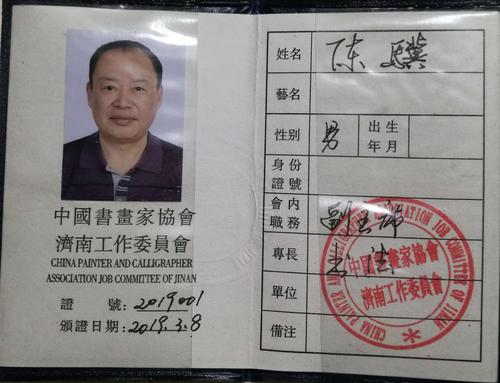 中國書畫家協會
濟南工作委員會
CHINA PAINTER AND CALLIGRAPHER
ASSOCIATION JOB COMMITTEE OF JINAN
證 號:2019001
頒證日期:2019.3.8
姓名 陈骥
藝名
性别 男 出生年月
身份證號
會内職務 副主席
專長 书法
單位
備注
CHINA PAINTER AND CALLIGRAPHER ASSOCIATION JOB COMMITTEE OF JINAN
中國書畫家協會
濟南工作委員會